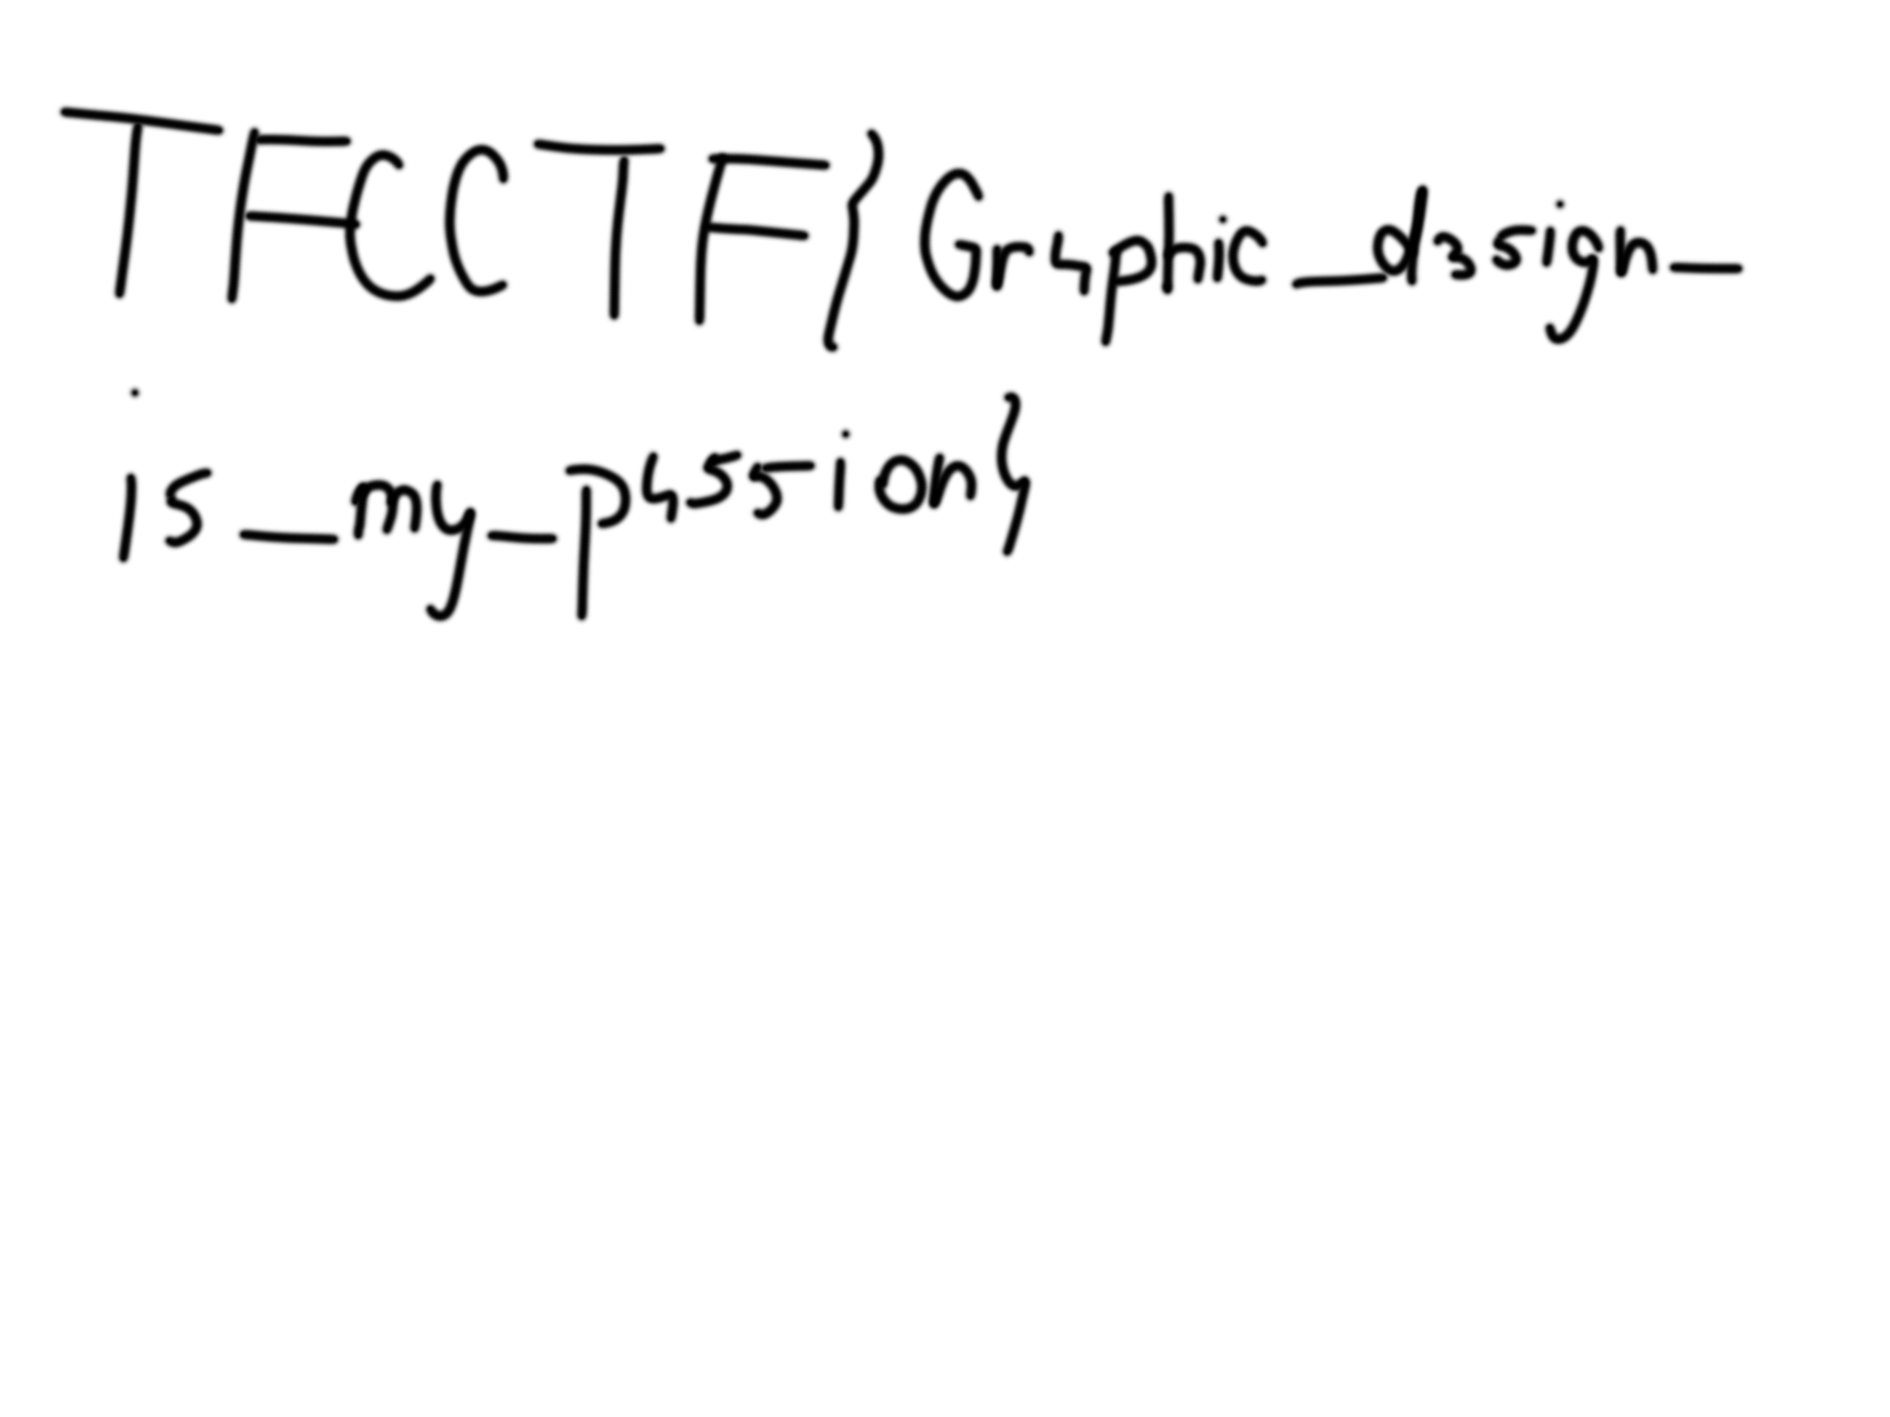 TFCCTF{Gr4phic_d3sign_
is_my_p455ion}